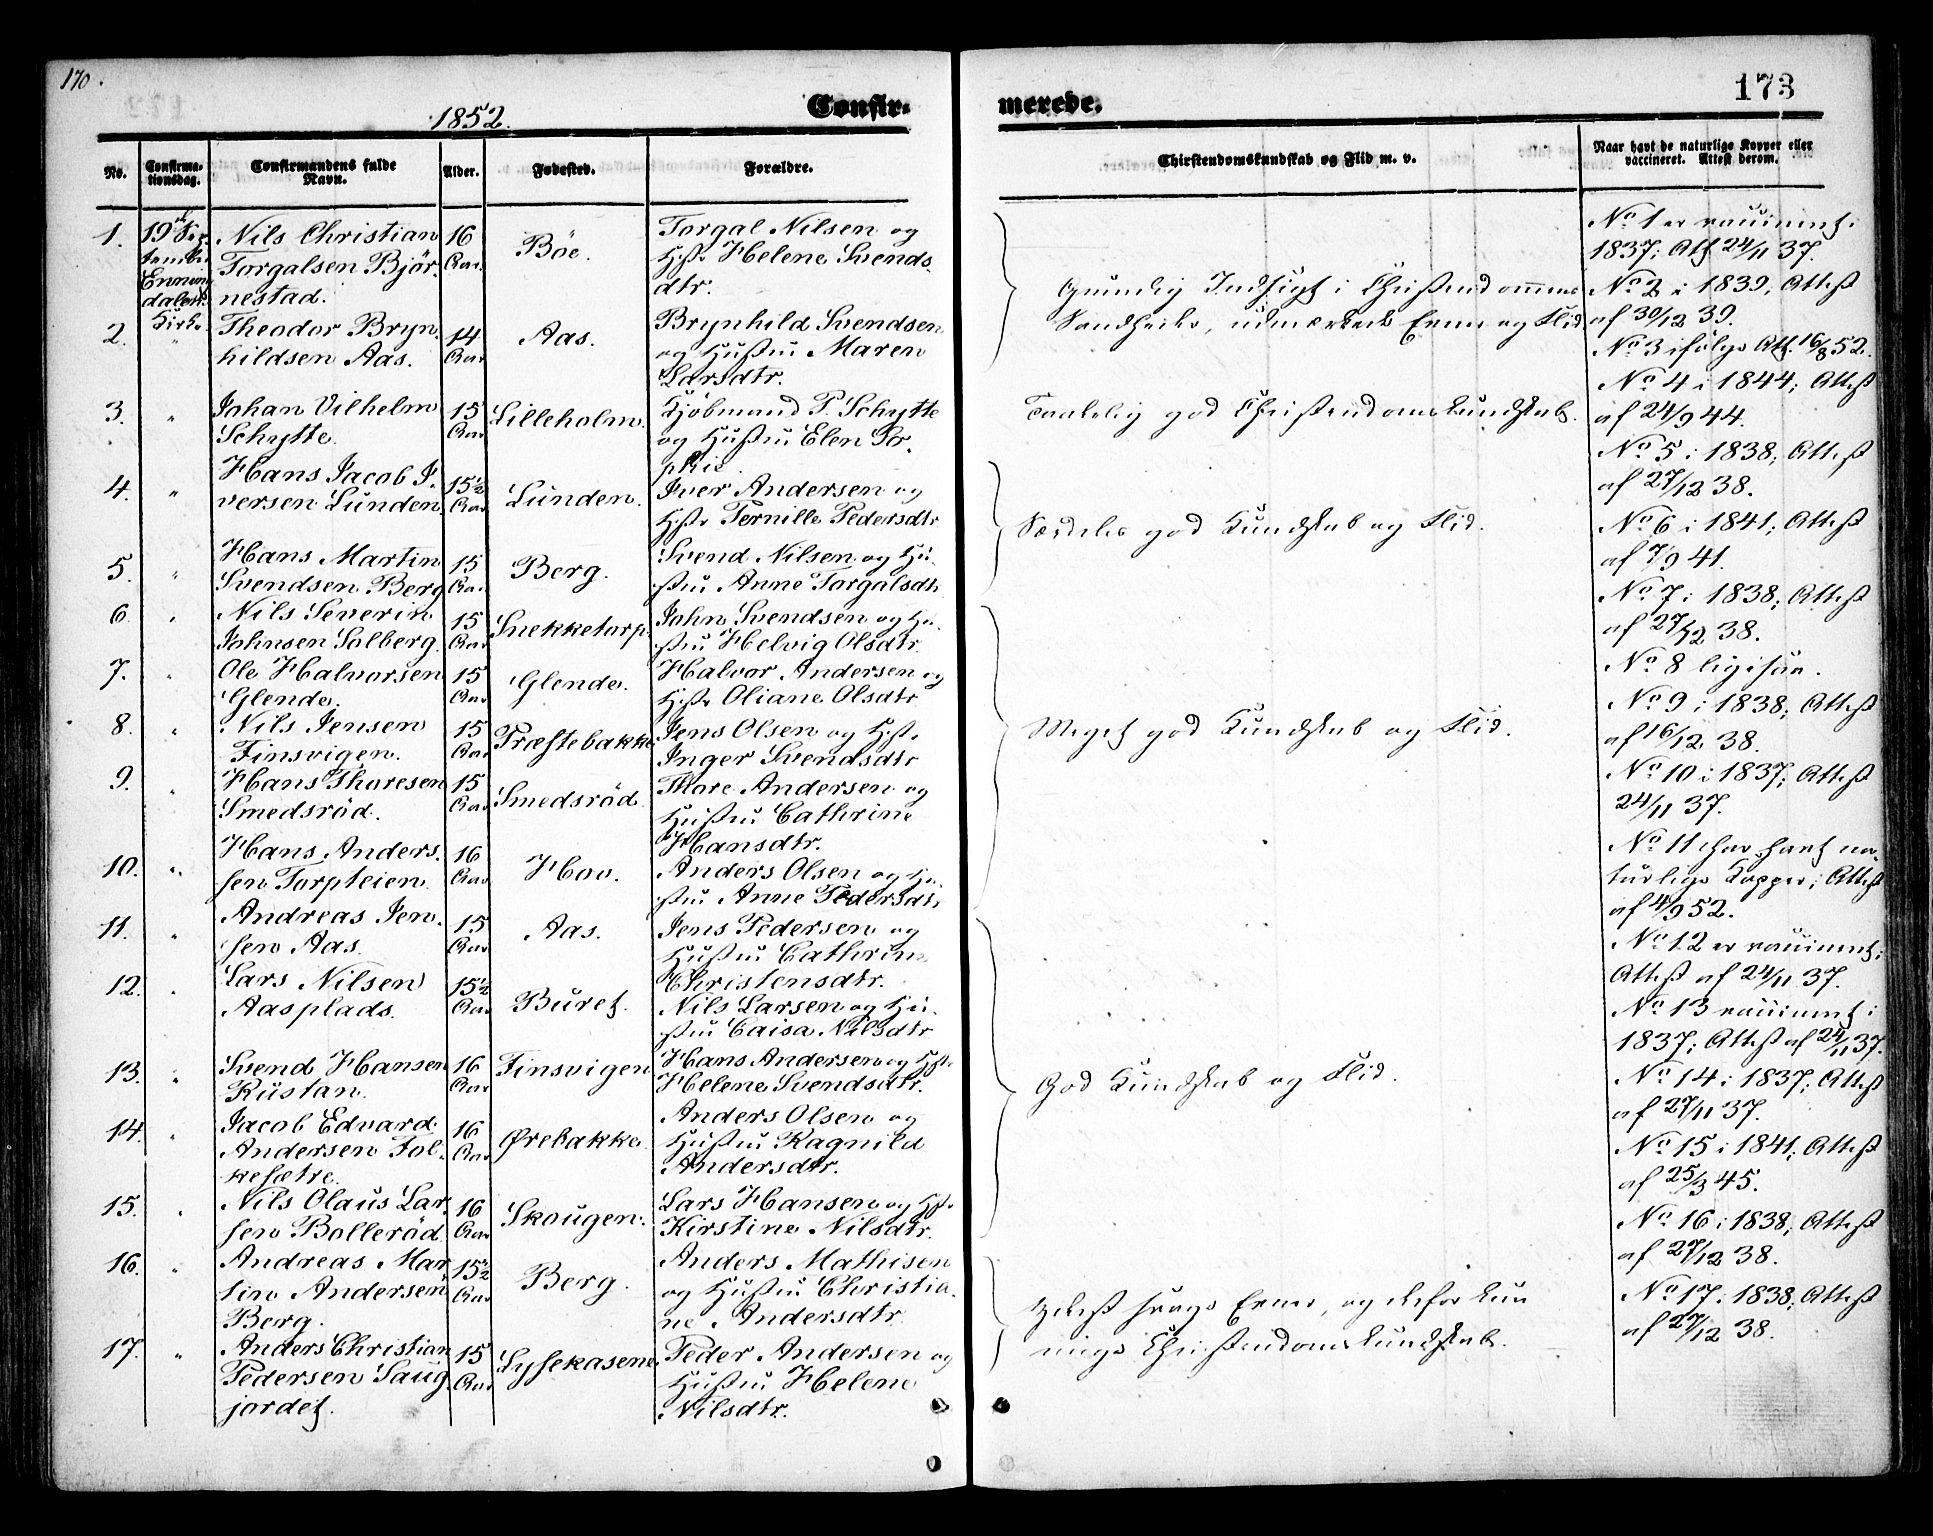 170.
1852.
Confir-
No.
Confirma-
tionsdag.
Confirmandens fulde
Navn.
Alder.
Fødested.
Forældre.
1.
19de Sep-
tember
Enning
dalens
Kirke
Nils Christian
Torgalsen Bjør-
nestad.
16
Aar.
Bøe.
Torgal Nilsen og
Hstr Helene Svends-
dtr.
2.
"
Theodor Bryn-
hildsen Aas.
14
Aar
Aas.
Brynhild Svendsen
og Hustru Maren
Larsdtr.
3.
"
Johan Vilhelm
Schytte.
15
Aar
Lilleholm.
Kjøbmand P. Schytte
og Hustru Elen So-
phie
4.
"
Hans Jacob I-
versen Lunden.
15½
Aar
Lunden.
Iver Andersen og
Hstr Pernille Pedersdtr
5.
"
Hans Martin
Svendsen Berg
15
Aar
Berg.
Svend Nilsen og Hu-
stru Anne Torgalsdtr
6.
"
Nils Severin
Johnsen Solberg.
15
Aar
Snekketorp.
John Svendsen og Hu-
stru Helvig Olsdtr.
7.
"
Ole Halvorsen
Glende.
15
Aar
Glende.
Halvor Andersen og
Hstr Oliane Olsdtr
8.
"
Nils Jensen
Finsvigen.
15
Aar
Præstebakke
Jens Olsen og Hstr
Inger Svendsdtr
9.
"
Hans Thoresen
Smedsrød.
15
Aar
Smedsrød.
Thore Andersen og
Hustru Cathrine
Hansdtr.
10.
"
Hans Anders-
sen Torpteien.
16
Aar
Hov.
Anders Olsen og Hu-
stru Anne Pedersdtr
11.
"
Andreas Jen-
sen Aas.
15
Aar
Aas.
Jens Pedersen og
Hustru Cathrine
Christensdtr.
12.
"
Lars Nilsen
Aasplads.
15½
Aar
Buret.
Nils Larsen og Hu-
stru Caisa Nilsdtr
13.
"
Svend Hansen
Rustan.
16
Aar
Finsvigen
Hans Andersen og Hstr
Helene Svendsdtr.
14.
"
Jacob Edvard
Andersen Fol-
kesætre.
16
Aar
Ørebakke.
Anders Olsen og
Hustru Ragnild
Andersdtr.
15.
"
Nils Olaus Lar-
sen Bollerød.
16
Aar
Skougen.
Lars Hansen og Hstr
Kirstine Nilsdtr.
16.
"
Andreas Mar-
tin Andersen
Berg.
15½
Aar
Berg.
Anders Mathisen
og Hustru Christia-
ne Andersdtr.
17.
"
Anders Christian
Pedersen Saug-
jordet.
15
Aar
Lysekasene.
Peder Andersen og
Hustru Helene
Nilsdtr.
173
merede.
Chirstendomskundskab og Flid m. v.
Naar havt de naturlige Kopper eller
vaccineret. Attest derom.
Grundig Indsigt i Christendommens
Sandheder, udmærkede Evner og Flid
Taalelig god Christendomskundskab.
Særdeles god Kundskab og Flid.
Meget god Kundskab og Flid.
God Kundskab og Flid.
svage Evner, og derfor kun
Christendomskundskab.
No 1 er vaccineret i
1837; Att. 24/11 37.
No 2 i 1839, Attest
af 30/12 39.
No 3 ifølge Att. 16/8 52.
No 4 i 1844; Attest
af 24/9 44.
No 5 i 1838; Attest
af 27/12 38.
No 6 i 1841; Attest
af 7/9 41.
No 7 i 1838; Attest
af 27/12 38.
No 8 ligesaa.
No 9 i 1838; Attest
af 16/12 38.
No 10 i 1837; Attest
24/11 37.
No 11 har havt na-
turlige Kopper; Attest
af 4/9 52.
No 12 er vaccineret;
Attest af 24/11 37.
No 13 vaccineret i
1837; Attest af 24/11 37.
No 14 i 1837; Attest
af 27/11 37.
No 15 i 1841; Attest
af 25/3 45.
No 16 i 1838; Attest
af 27/12 38.
No 17 i 1838; Attest
af 27/12 38.